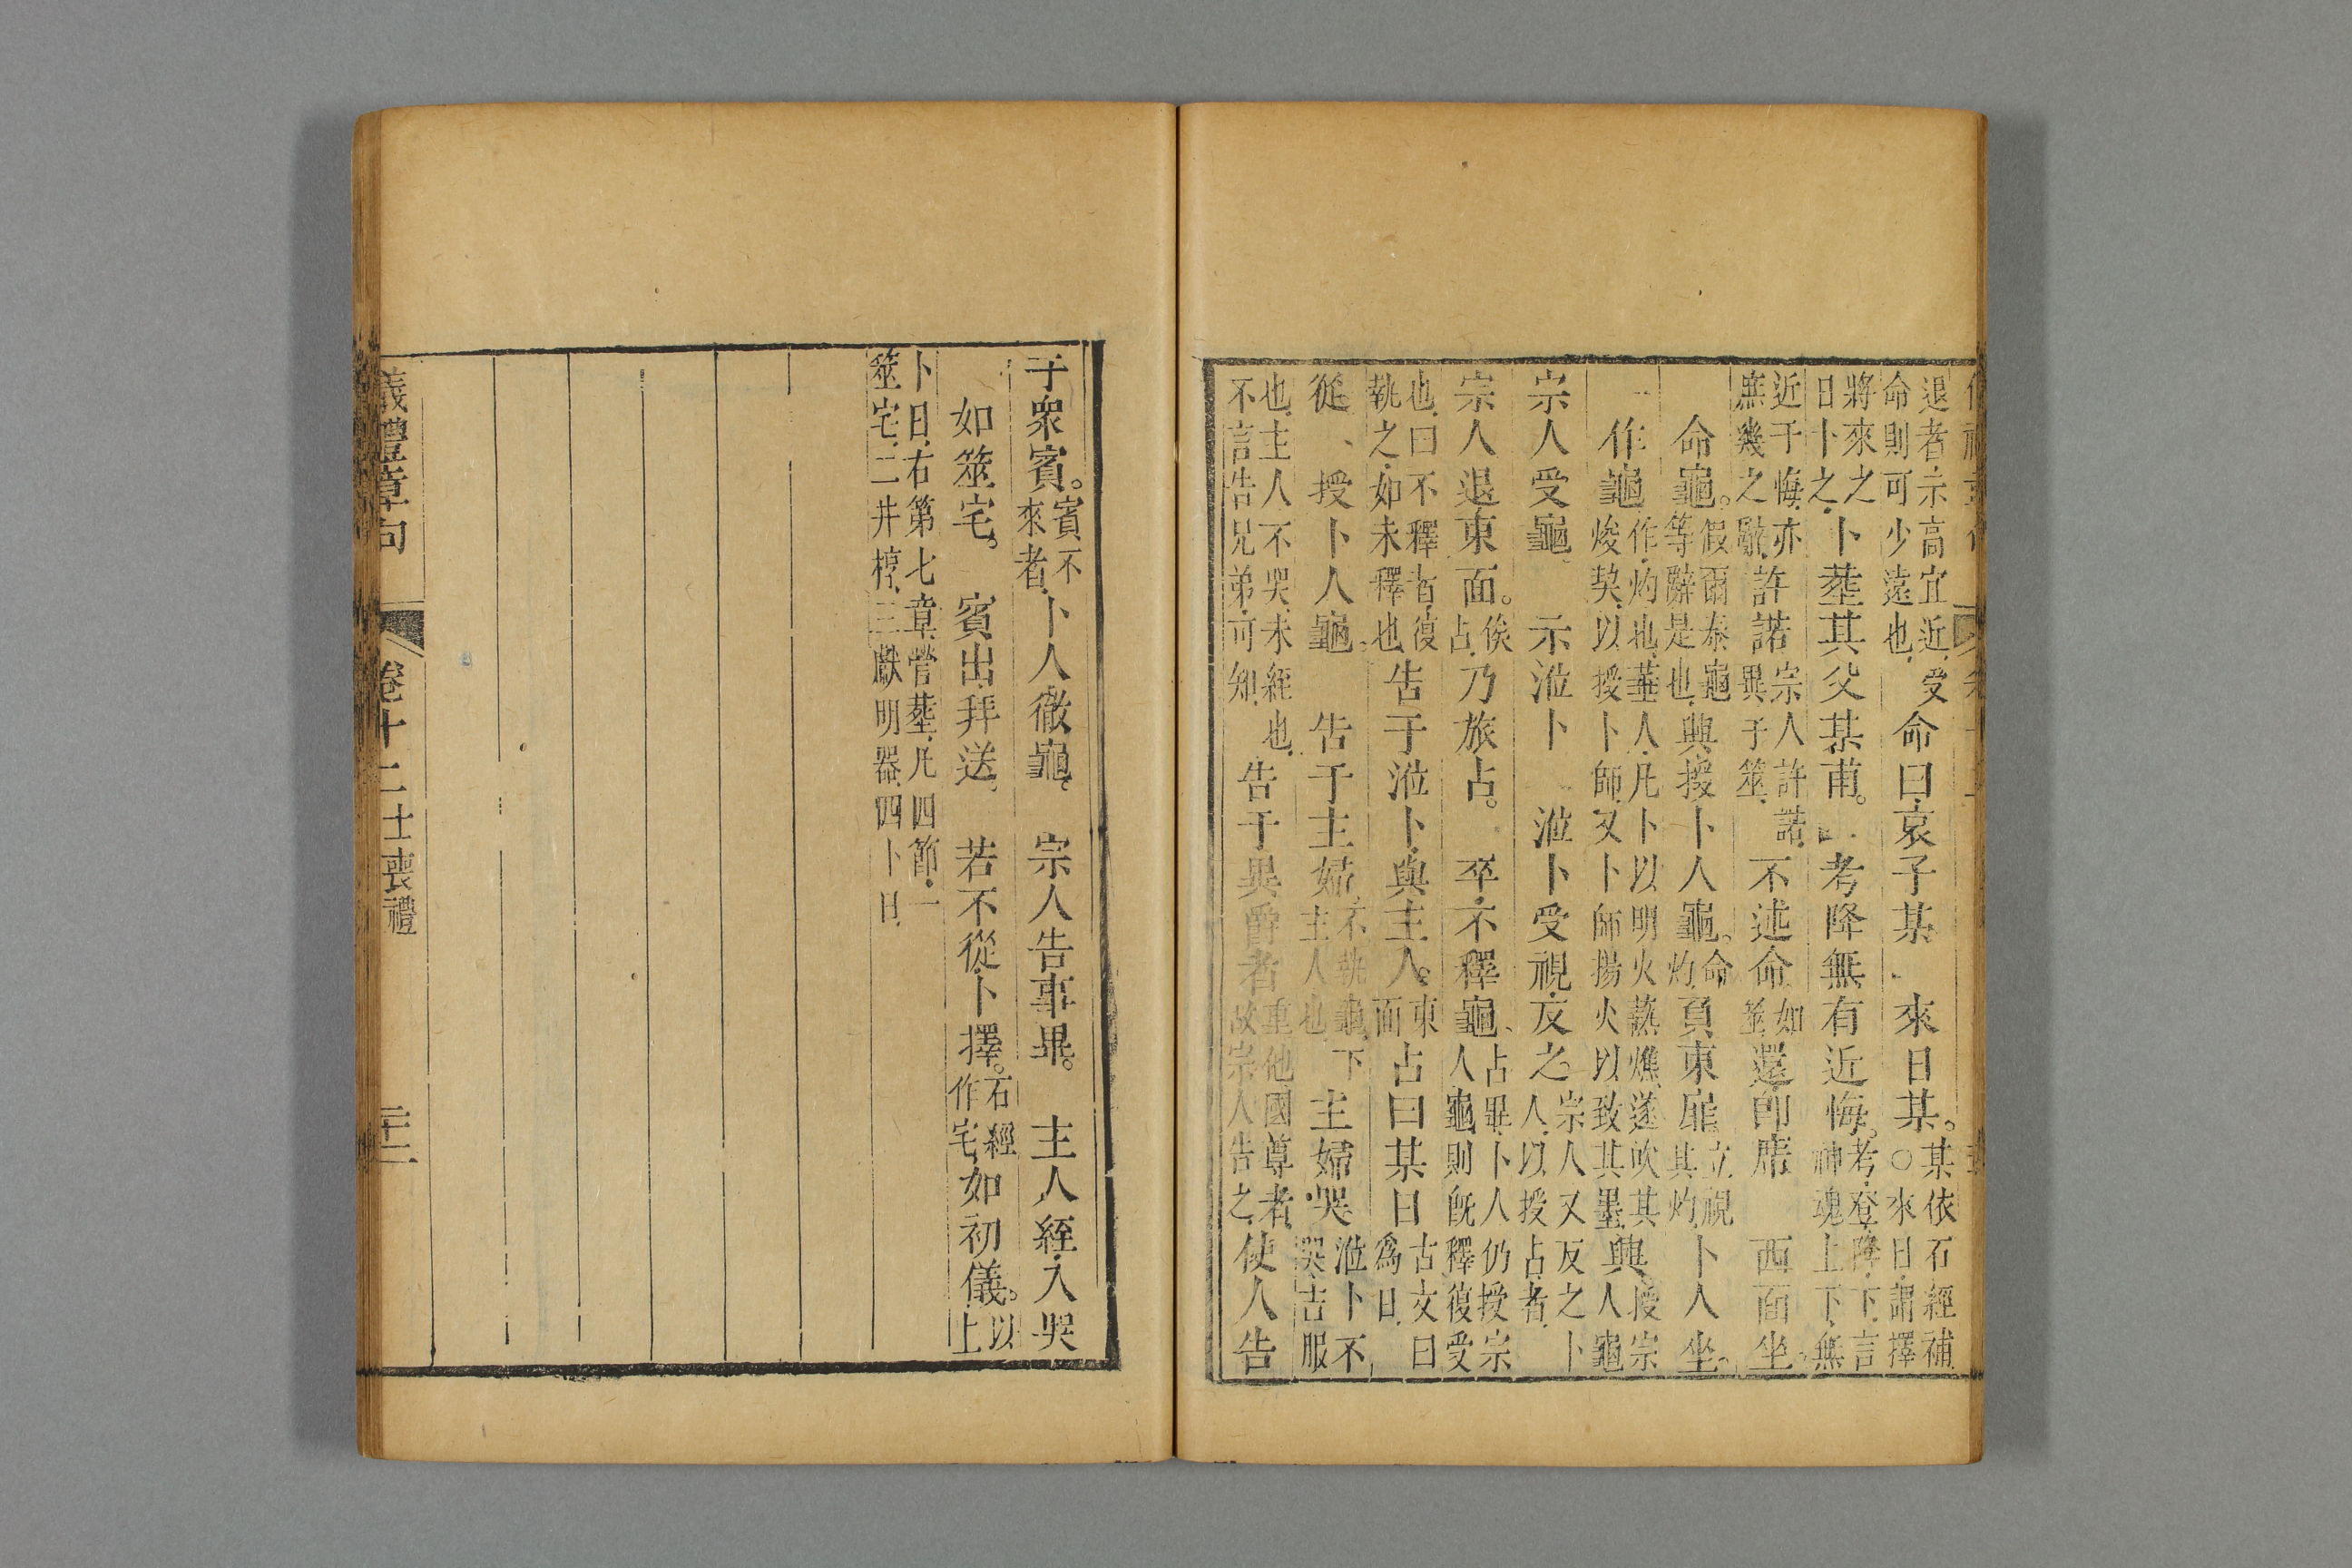 退者示高宜近受
命則可少遠也
命曰哀子某 來日某。
某依石經補
○來日謂擇
將來之之
日卜之
卜葬其父某甫。 考降無有近悔。
考登降下言
神魂上下無
近于悔亦
庶幾之辭
許諾
宗人許諾
異于筮
不述命
如
筮
還卽席 西面坐。
命龜。
假爾泰龜
等辭是也
興授卜人龜。
命
灼
負東扉
立視
其灼
卜人坐。
作龜
作灼也菙人凡卜以明火爇燋遂吹其
焌契以授卜師又卜師揚火以致其墨
興
授宗
人龜
宗人受龜。 示涖卜 涖卜受視反之
宗人又反之卜
人以授占者
宗人退東面。
俟
占
乃旅占。 卒不釋龜
占畢卜人仍授宗
人龜則旣釋復受
也曰不釋者復
執之如未釋也
告于涖卜與主人。
東
面
占曰某日
古文曰
爲日
從 授卜人龜。 告于主婦
不執龜下
主人也
主婦哭
涖卜不
哭吉服
也主人不哭未絰也
不言告兄弟可知
告于異爵者
重他國尊者
故宗人告之
使人告
于衆賓。
賓不
來者
卜人徹龜。 宗人告事畢。 主人絰入哭
如筮宅。 賓出拜送。 若不從卜擇。
石經
作宅
如初儀。
以
上
卜日右第七章營葬凡四節一
筮宅二井椁三獻明器四卜日
儀禮章句 卷十二士喪禮 二十二